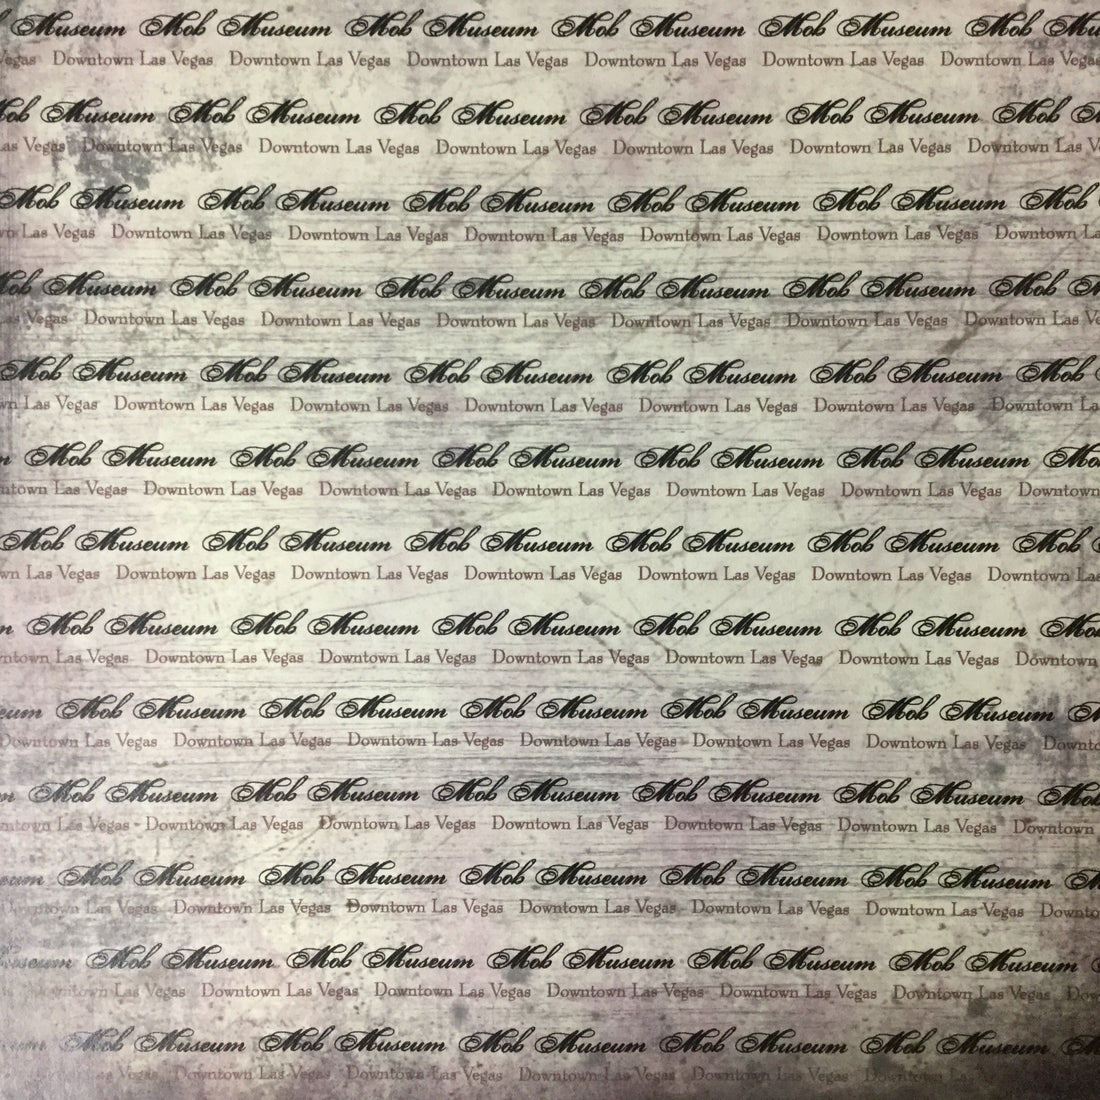 Museum Mob Museum Mob Museum Mob Museum Mob Museum Mob
Vegas Downtown Las Vegas Downtown Las Vegas Downtown Las Vegas Downtown Las Vegas Downtown Las Vegas Downtown Las Vegas
Mob Museum Mob Museum Mob Museum Mob Museum Mob Museum Mob
Las Vegas Downtown Las Vegas Downtown Las Vegas Downtown Las Vegas Downtown Las Vegas Downtown Las Vegas Downtown Las
Mob Museum Mob Museum Mob Museum Mob Museum Mob Museum Mob
Las Vegas Downtown Las Vegas Downtown Las Vegas Downtown Las Vegas Downtown Las Vegas Downtown Las Vegas Downtown
Mob Museum Mob Museum Mob Museum Mob Museum Mob Museum Mob
Las Vegas Downtown Las Vegas Downtown Las Vegas Downtown Las Vegas Downtown Las Vegas Downtown Las Vegas Downtown Las
Mob Museum Mob Museum Mob Museum Mob Museum Mob Museum Mob
Las Vegas Downtown Las Vegas Downtown Las Vegas Downtown Las Vegas Downtown Las Vegas Downtown Las Vegas Downtown
Mob Museum Mob Museum Mob Museum Mob Museum Mob Museum Mob
Las Vegas Downtown Las Vegas Downtown Las Vegas Downtown Las Vegas Downtown Las Vegas Downtown Las Vegas Downtown
Mob Museum Mob Museum Mob Museum Mob Museum Mob Museum Mob
Las Vegas Downtown Las Vegas Downtown Las Vegas Downtown Las Vegas Downtown Las Vegas Downtown Las Vegas Downtown Las
Mob Museum Mob Museum Mob Museum Mob Museum Mob Museum Mob
Las Vegas Downtown Las Vegas Downtown Las Vegas Downtown Las Vegas Downtown Las Vegas Downtown Las Vegas Downtown
Mob Museum Mob Museum Mob Museum Mob Museum Mob Museum
Downtown Las Vegas Downtown Las Vegas Downtown Las Vegas Downtown Las Vegas Downtown Las Vegas Downtown Las Vegas
Mob Museum Mob Museum Mob Museum Mob Museum Mob Museum Mob
Las Vegas Downtown Las Vegas Downtown Las Vegas Downtown Las Vegas Downtown Las Vegas Downtown Las Vegas Downtown
Mob Museum Mob Museum Mob Museum Mob Museum Mob Museum
Downtown Las Vegas Downtown Las Vegas Downtown Las Vegas Downtown Las Vegas Downtown Las Vegas Downtown Las Vegas
Museum Mob Museum Mob Museum Mob Museum Mob Museum Mob Museum
Downtown Las Vegas Downtown Las Vegas Downtown Las Vegas Downtown Las Vegas Downtown Las Vegas Downtown Las Vegas
Mob Museum Mob Museum Mob Museum Mob Museum Mob Museum
Las Vegas Downtown Las Vegas Downtown Las Vegas Downtown Las Vegas Downtown Las Vegas Downtown